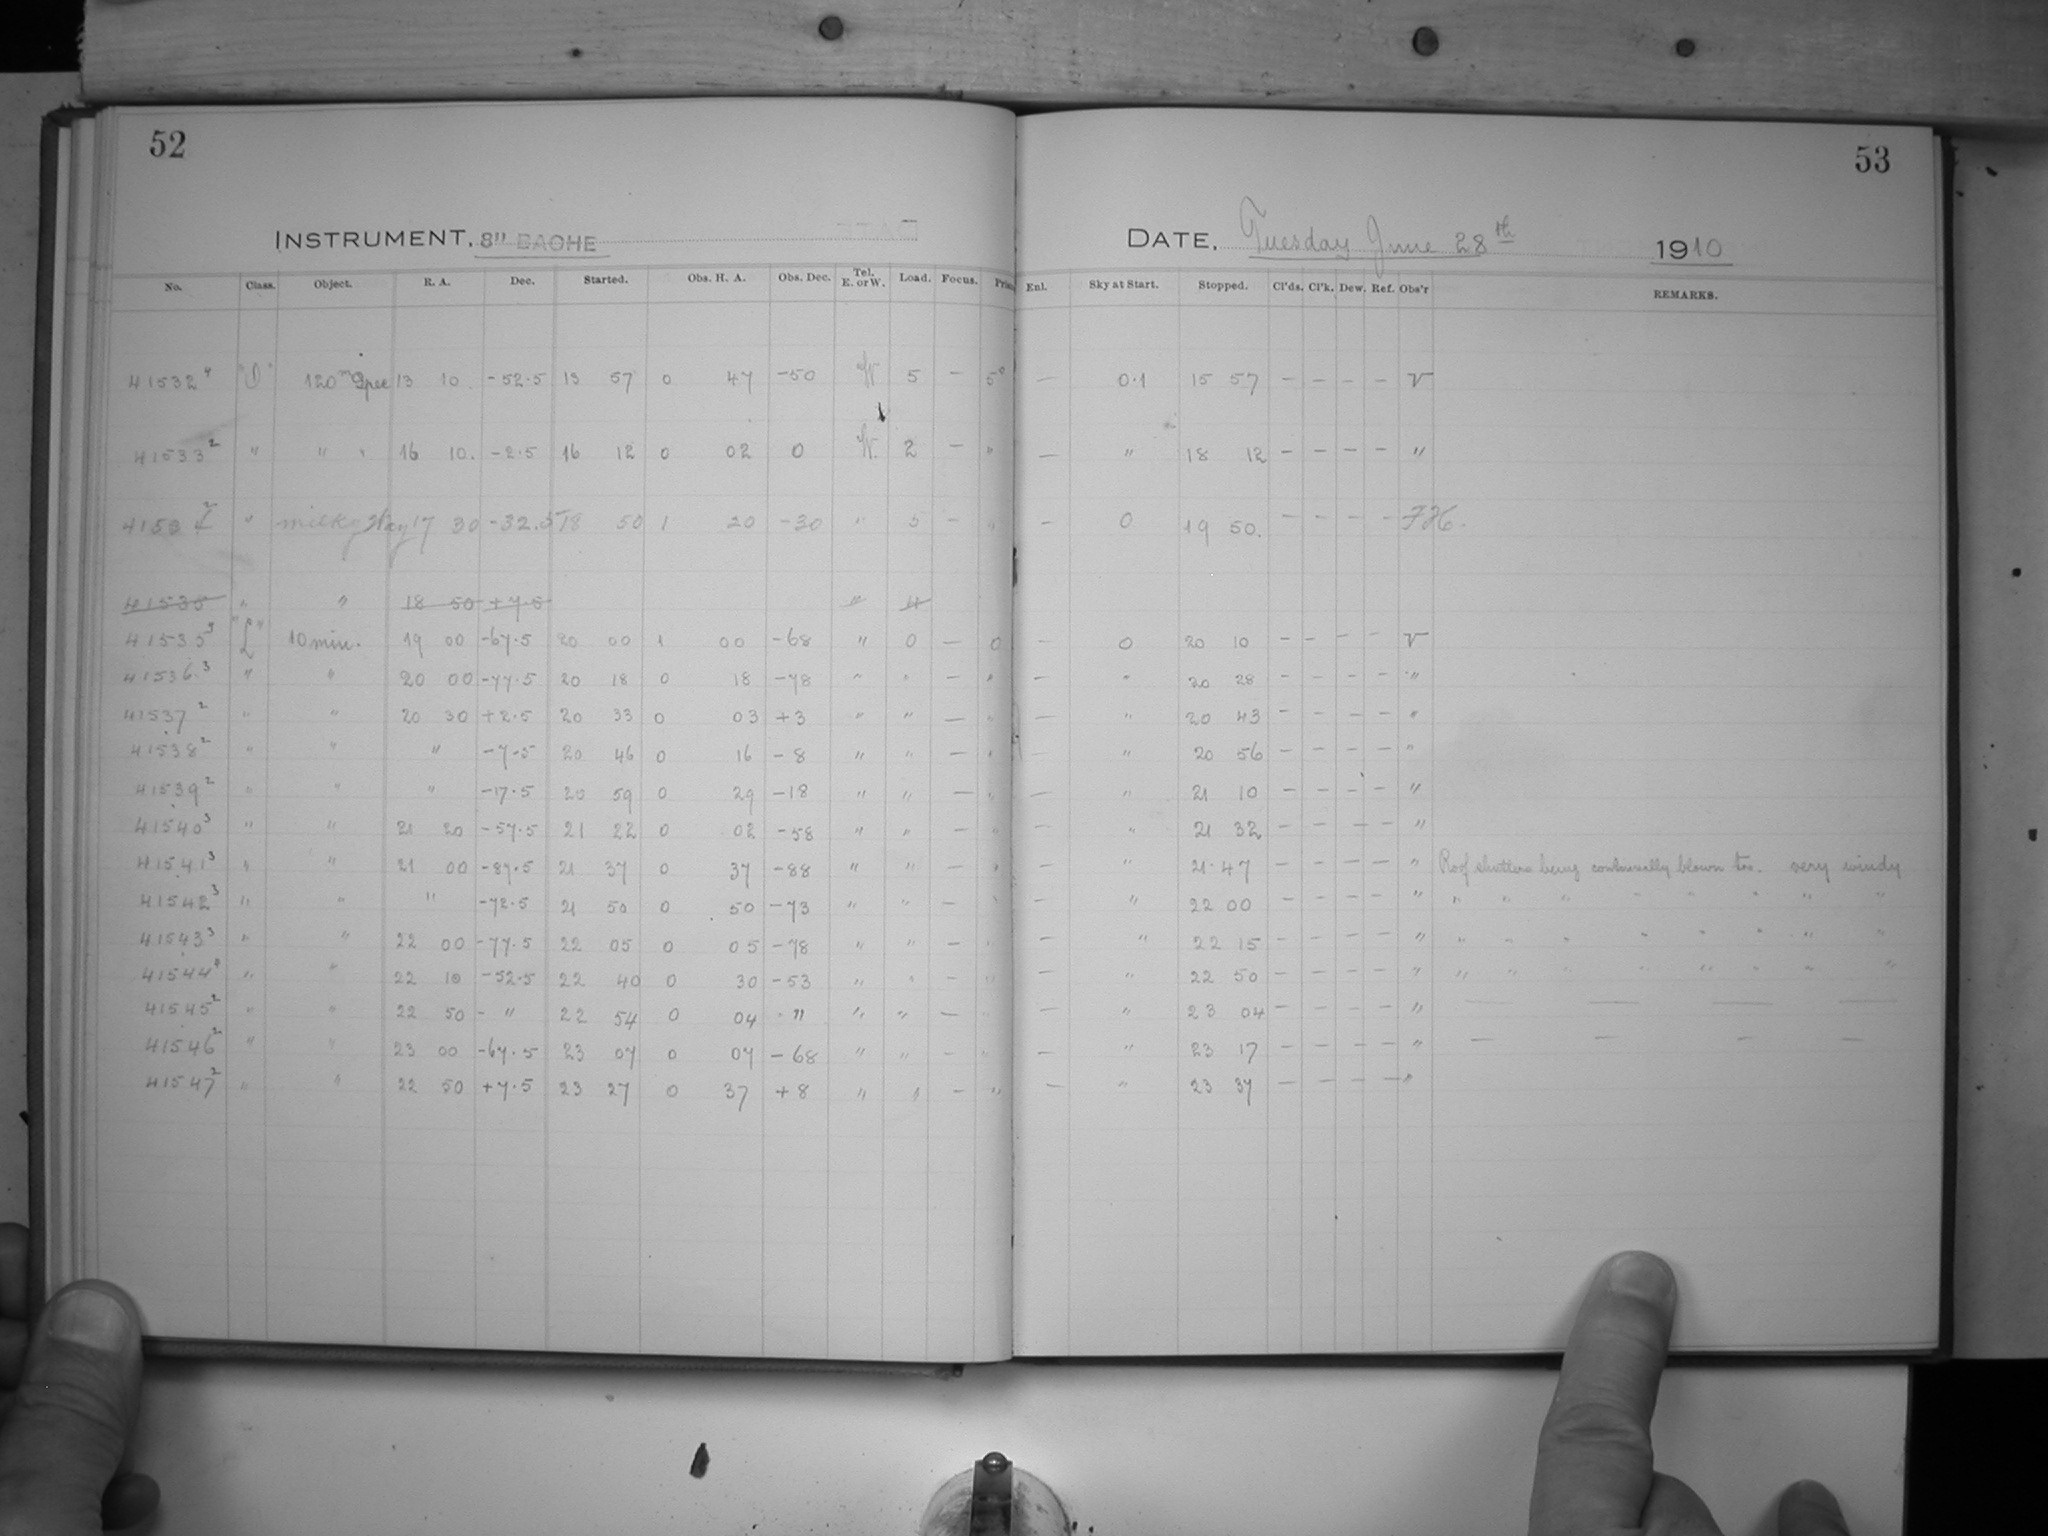 52
53
INSTRUMENT. 8" BACHE
DATE. Tuesday June 28th 1910
No. Class. Object. R. A. Dec. Started. Obs. H. A. Obs. Dec. Tel. E. or W. Load. Focus. Enl. Sky at Start. Stopped. Cl'ds. Cl'k. Dew. Ref. Obs'r REMARKS.
41532 4 "D" 120m Spec 13 10 -52.5 13 57 0 47 -50 W 5 — 5° — 0.1 15 57 — — — — V
41533 2 " " " 16 10. -2.5 16 12 0 02 0 W. 2 — " — " 18 12 — — — — "
4153 2 " Milky Way 17 30 -32.5 18 50 1 20 -30 " 5 — " — 0 19 50. — — — —
41535 " " 18 50 +7.5 " 4
41535 3 "L" 10 min. 19 00 -67.5 20 00 1 00 -68 " 0 — 0 — 0 20 10 — — — — V
41536 3 " " 20 00 -77.5 20 18 0 18 -78 " " — " — " 20 28 — — — — "
41537 2 " " 20 30 +2.5 20 33 0 03 +3 " " — " — " 20 43 — — — — "
41538 2 " " " -7.5 20 46 0 16 -8 " " — " — " 20 56 — — — — "
41539 2 " " " -17.5 20 59 0 29 -18 " " — " — " 21 10 — — — — "
41540 3 " " 21 20 -57.5 21 22 0 02 -58 " " — " — " 21 32 — — — — "
41541 3 " " 21 00 -87.5 21 37 0 37 -88 " " — " — " 21.47 — — — — " Roof shutters being continually blown too. very windy
41542 3 " " " -72.5 21 50 0 50 -73 " " — " — " 22 00 — — — — " " " " " " " " "
41543 3 " " 22 00 -77.5 22 05 0 05 -78 " " — " — " 22 15 — — — — " " " " " " " " "
41544 4 " " 22 10 -52.5 22 40 0 30 -53 " " — " — " 22 50 — — — — " " " " " " " " "
41545 2 " " 22 50 - " 22 54 0 04 " " " — " — " 23 04 — — — — " — — — —
41546 2 " " 23 00 -67.5 23 07 0 07 -68 " " — " — " 23 17 — — — — " — — — —
41547 2 " " 22 50 +7.5 23 27 0 37 +8 " " — " — " 23 37 — — — — "